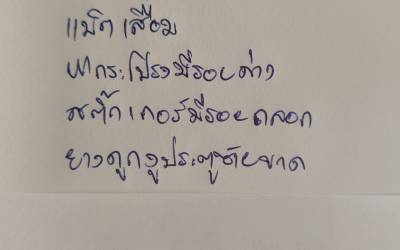 แบ๊ต เสื่อม
ฝากระโปรงมีรอยด่าง
สติ๊กเกอร์มีรอยถลอก
ยางดูกงูประตูซ้ายขาด